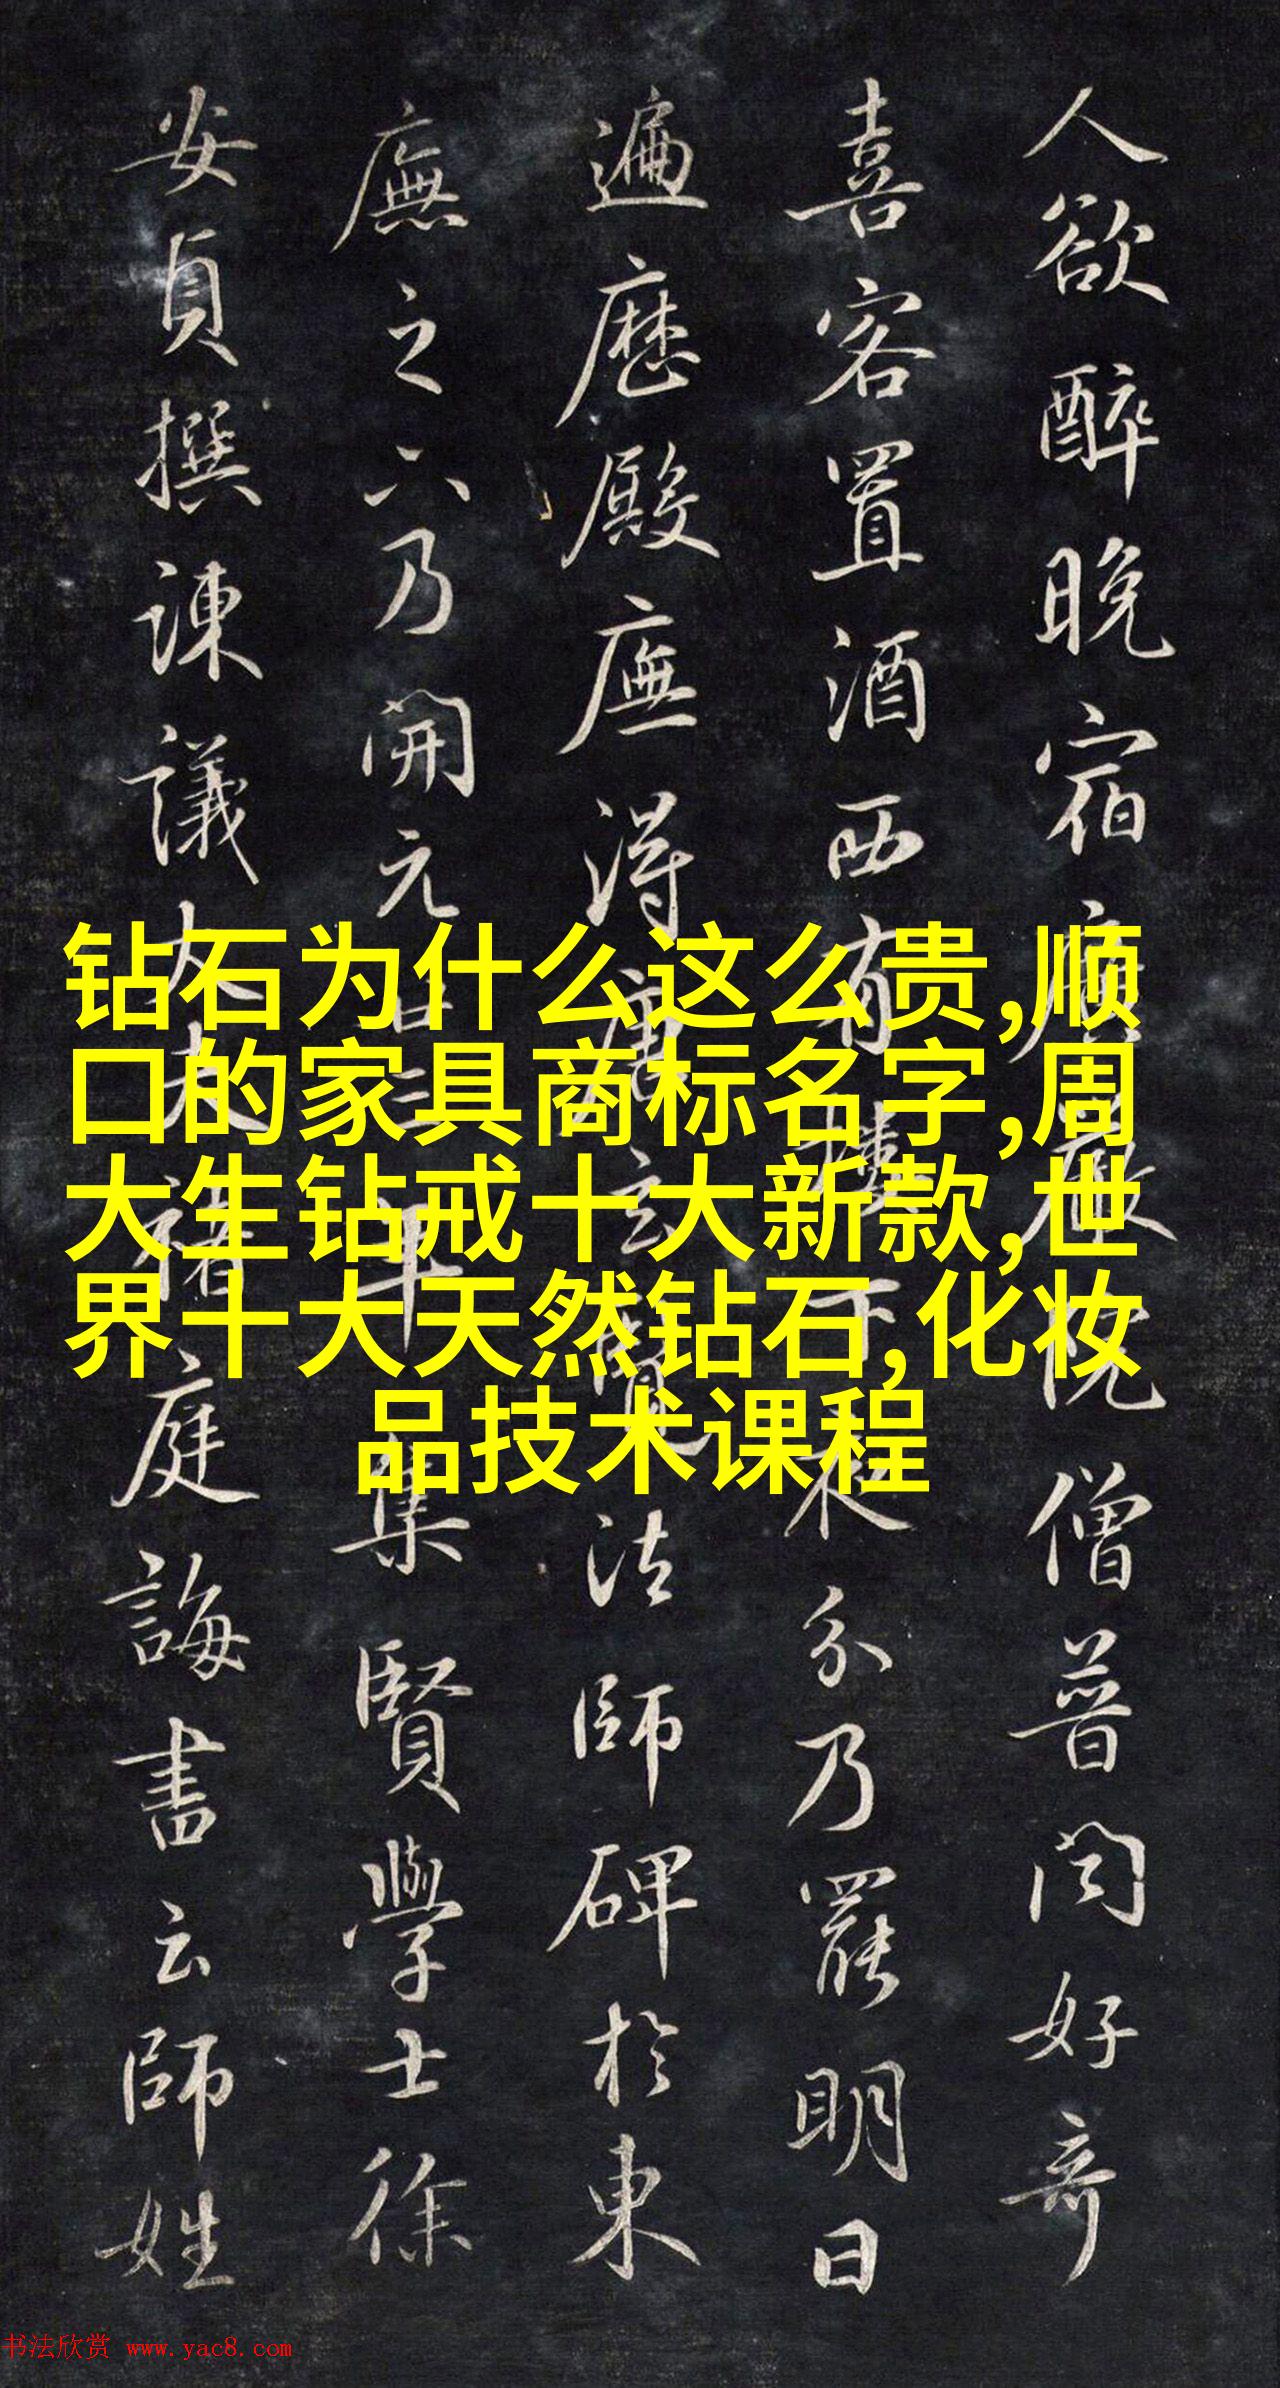 人欲醉晚宿廣嚴院僧普闻好奇
喜客置酒西有樓下夜分乃罷明日
遍歷殿廡得唐玄覽法師碑於東
廡之六乃開元廿三年集賢學士徐
安貞撰諫議大夫褚庭誨書云師姓
钻石为什么这么贵,顺
口的家具商标名字,周
大生钻戒十大新款,世
界十大天然钻石,化妆
品技术课程
书法欣赏 www.yac8.com